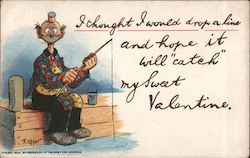 I thought I would drop a line
and hope it
will "catch"
my Sweet
Valentine.